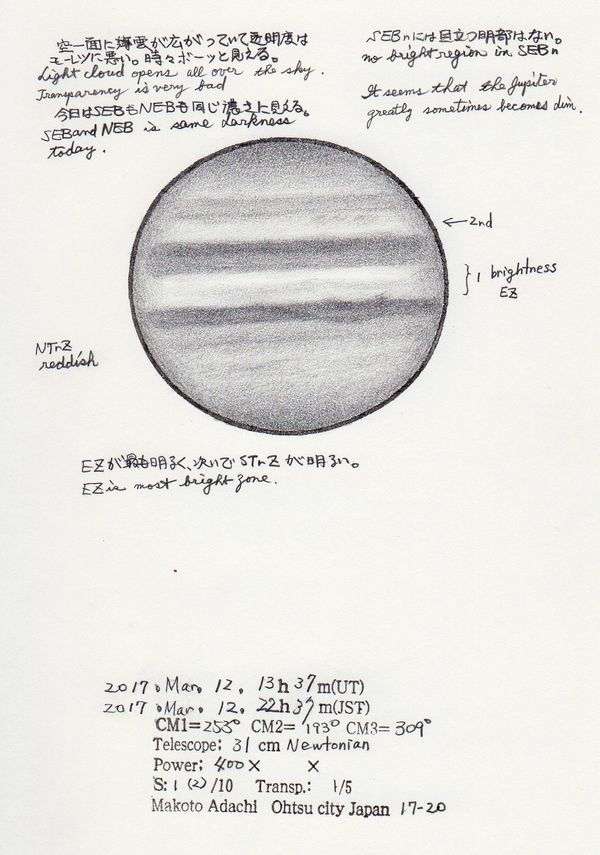 空一面に薄雲が広がっていて透明度は
モーレツに悪い。時々ボーッと見える。
Light cloud opens all over the sky.
Transparency is very bad
今日はSEBもNEBも同じ濃さに見える。
SEB and NEB is same darkness
today.
SEBnには目立つ明部はない。
no bright region in SEBn
It seems that the Jupiter
greatly sometimes becomes dim.
←2nd
} 1 brightness
EZ
NTrZ
reddish
EZが最も明るく、次いでSTrZが明るい。
EZ is most bright zone.
2017. Mar. 12. 13h 37m(UT)
2017. Mar. 12. 22h 37m(JST)
CM1=253° CM2=193° CM3=309°
Telescope: 31 cm Newtonian
Power: 400× ×
S: 1 (2) /10 Transp.: 1/5
Makoto Adachi Ohtsu city Japan 17-20